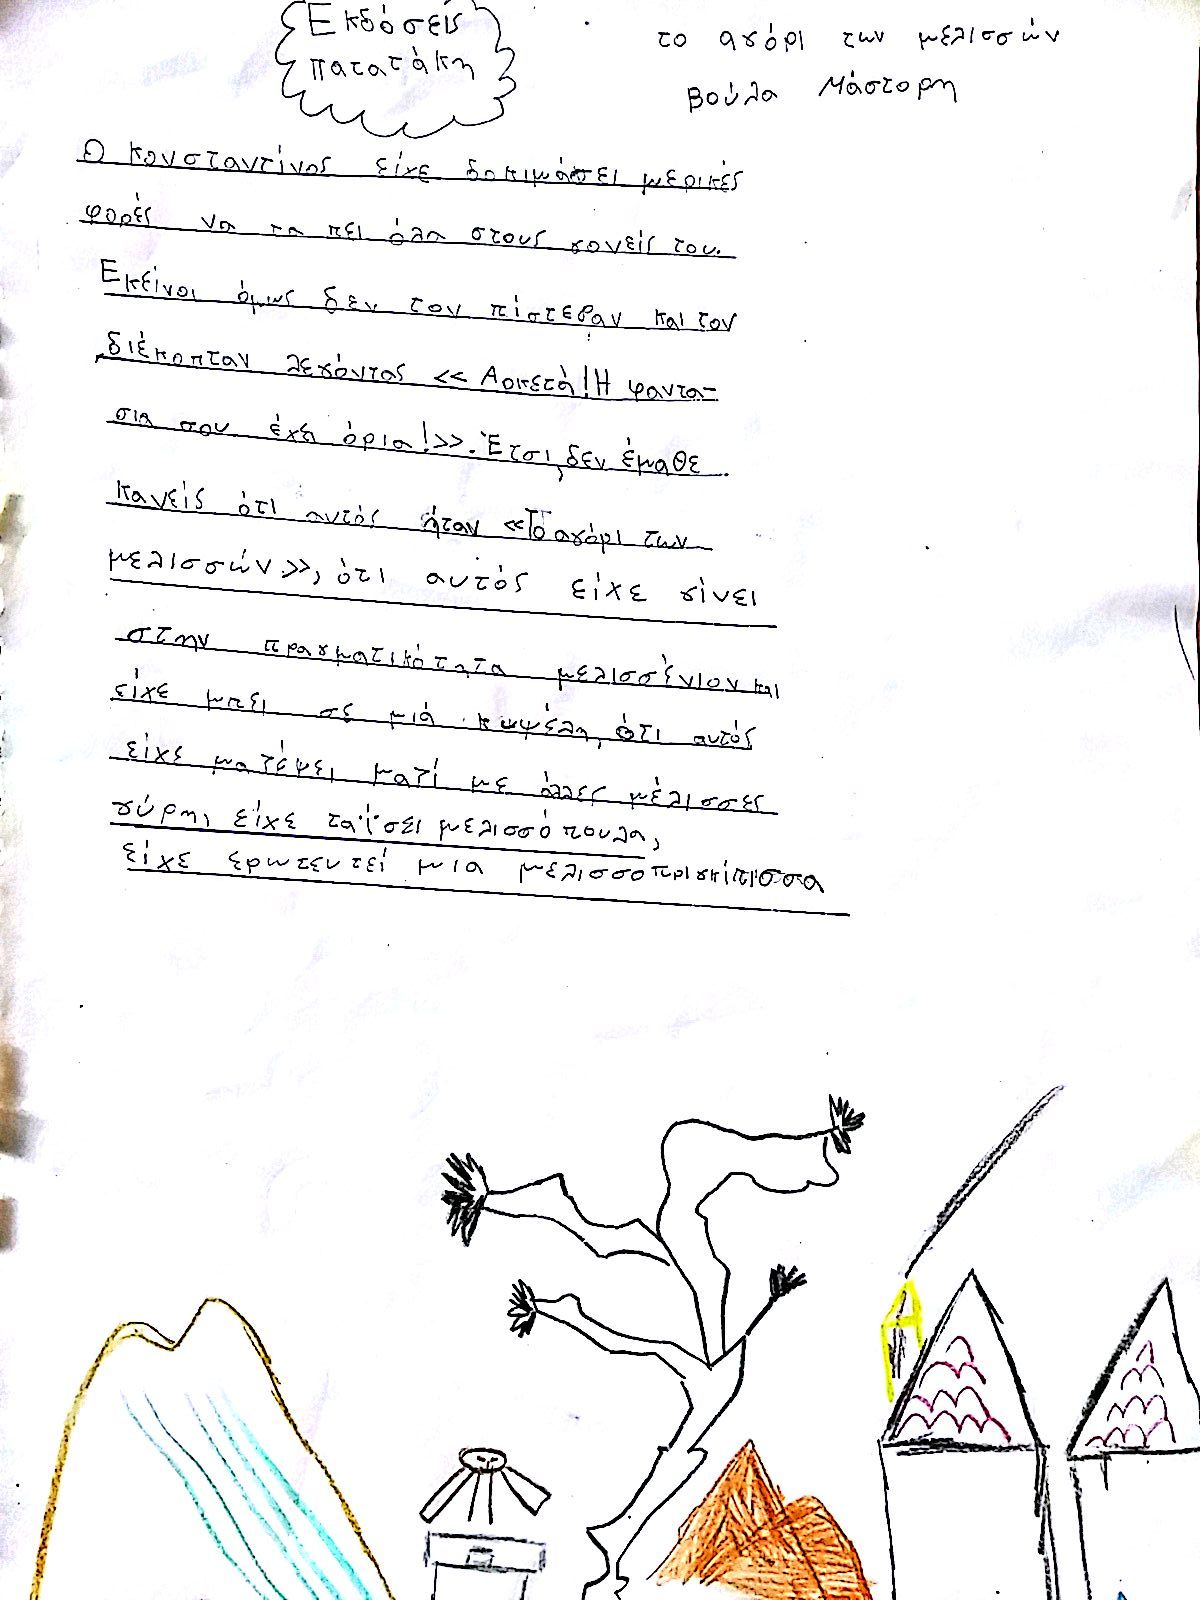 Εκδόσεις
πατατάκη
το αγόρι των μελισσών
Βούλα Μάστορη
Ο κονσταντίνος είχε δοκιμάσει μερικές
φορές να τα πει όλα στους γονείς του.
Εκείνοι όμως δεν τον πίστεβαν και τον
διέκοπταν λεγόντας << Αρκετά! Η φαντα-
σια σου έχει όρια!>>. Έτσι, δεν έμαθε
κανείς ότι αυτός ήταν «Το αγόρι των
μελισσών>>, ότι αυτός είχε γίνει
στην πραγματικότητα μελισσένιον και
είχε μπει σε μιά κυψέλη, ότι αυτός
είχε ματέψει ματί με άλλες μέλισσες
γύρη, είχε ταΐσει μελισσόπουλα,
είχε ερωτευτεί μια μελισσοπριγκίπισσα